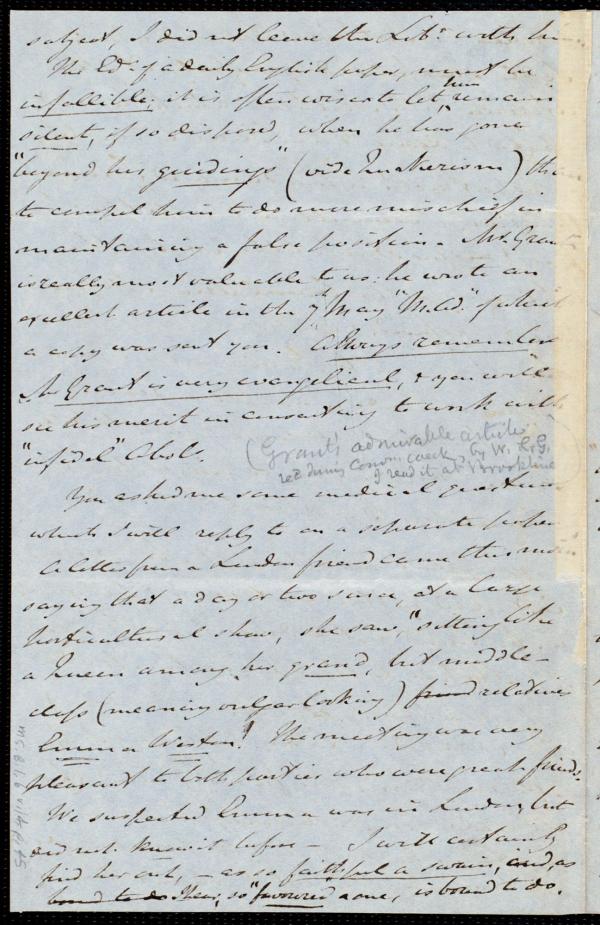 subject, I did not leave the Libr. with him
The Edr. of a daily English paper, must be
infallible; it is often wiser to let him remain
silent, if so disposed, when he has gone
"beyond his guidings" (vide Quakerism) than
to compel him to do more mischief in
maintaining a false position. Mr. Grant
is really most valuable to us: he wrote an
excellent article in the 7th May "M.Ad." of which
a copy was sent you. Always remember
Mr Grant is very evangelical, & you will
see his merit in consenting to work with
"infidel" Abols.
(Grant's admirable article
recd. during Conv. week, by W. L. G.
I read it at Brookline)
You asked me some medical questions
which I will reply to on a separate paper
A letter from a London friend came this morn
saying that a day or two since, at a large
horticultural show, she saw, "sitting like
a Queen among her grand, but middle-
class (meaning vulgar looking) friend relatives
Emma Weston"! The meeting was very
pleasant to both parties who were great friends.
We suspected Emma was in London, but
did not know it before - I will certainly
find her out, - as so faithful a swain, and, as
bound to do so "favoured a one, is bound to do.